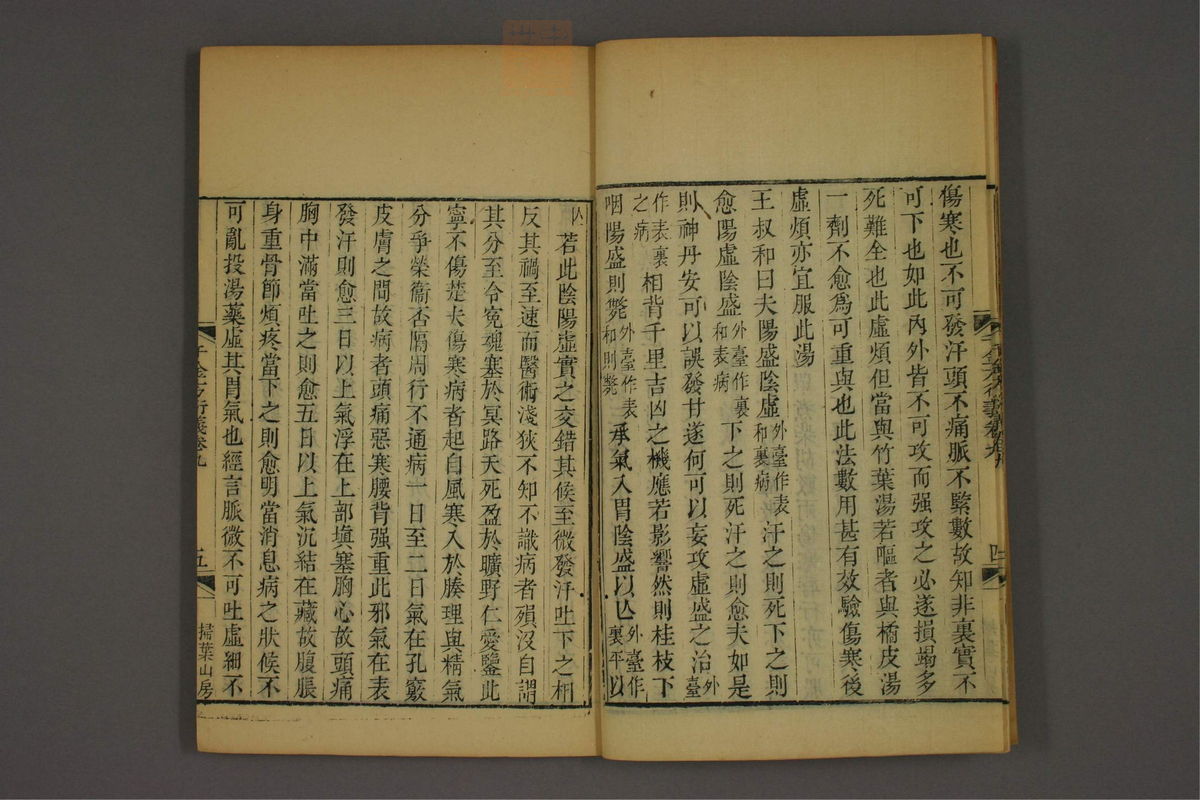 傷寒也不可發汗頭不痛脈不緊數故知非裏實不
可下也如此內外皆不可攻而强攻之必遂損竭多
死難全也此虛煩但當與竹葉湯若嘔者與橘皮湯
一劑不愈爲可重與也此法數用甚有效驗傷寒後
虛煩亦宜服此湯
王叔和曰夫陽盛陰虛外臺作表和裏病汗之則死下之則
愈陽虛陰盛外臺作裏和表病下之則死汗之則愈夫如是
則神丹安可以誤發甘遂何可以妄攻虛盛之治外臺
作表裏之病相背千里吉凶之機應若影響然則桂枝下
咽陽盛則斃外臺作表和則斃承氣入胃陰盛以亡外臺作裏平以
千金方衍義卷九
四
亡若此陰陽虛實之交錯其候至微發汗吐下之相
反其禍至速而醫術淺狹不知不識病者殞沒自謂
其分至令冤魂塞於冥路夭死盈於曠野仁愛鑒此
寧不傷楚夫傷寒病者起自風寒入於腠理與精氣
分爭榮衞否隔周行不通病一日至二日氣在孔竅
皮膚之間故病者頭痛惡寒腰背强重此邪氣在表
發汗則愈三日以上氣浮在上部塡塞胸心故頭痛
胸中滿當吐之則愈五日以上氣沉結在藏故腹脹
身重骨節煩疼當下之則愈明當消息病之狀候不
可亂投湯藥虛其胃氣也經言脈微不可吐虛細不
千金方衍義卷九
五
掃葉山房